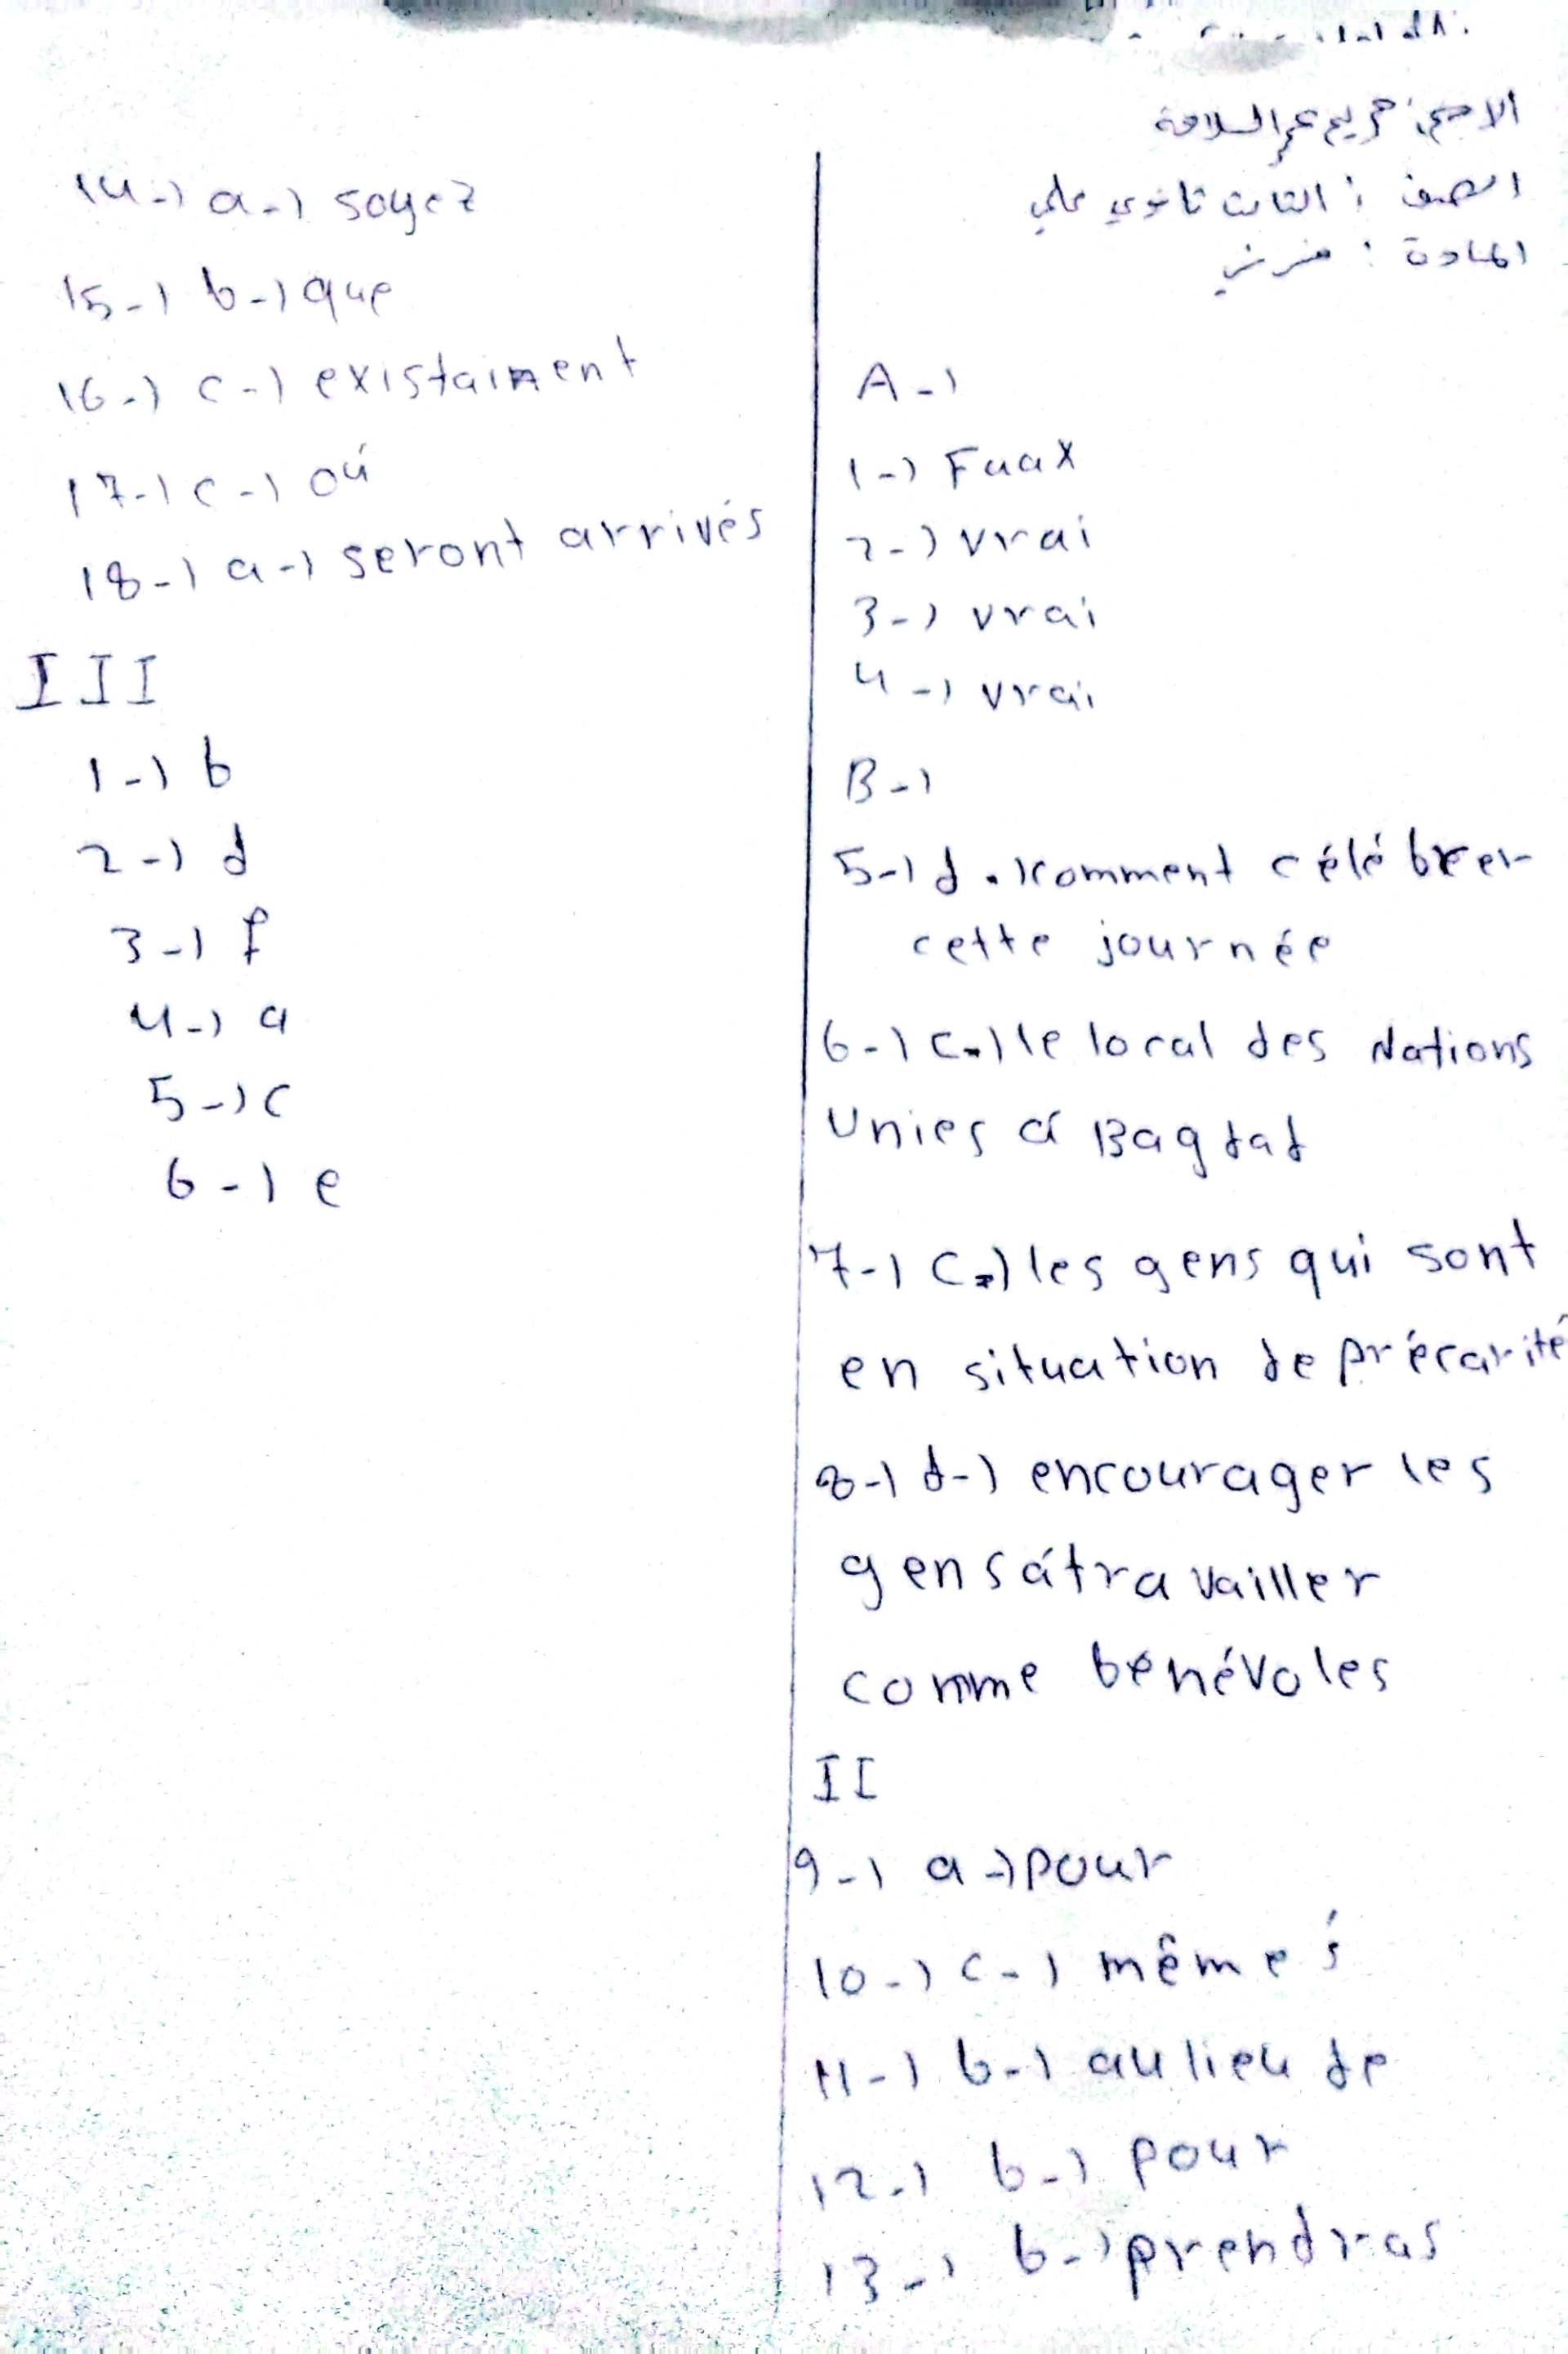 الاسم: مريم عبد السلامة
الصف : الثالث ثانوي علمي
المادة : فرنسي
A-)
1-) Faax
2-) vrai
3-) vrai
4-) vrai
B-)
5-) d.) comment célébrer
cette journée
6-) c-) le local des Nations
Unies á Bagdad
7-) c-) les gens qui sont
en situation de précarité
8-) d-) encourager les
gens á travailler
comme bénévoles
II
9-) a-) pour
10-) c-) mêmes
11-) b-) au lieu de
12-) b-) pour
13-) b-) prendras
14-) a-) soyez
15-) b-) que
16-) c-) existaient
17-) c-) oú
18-) a-) seront arrivés
III
1-) b
2-) d
3-) f
4-) a
5-) c
6-) e